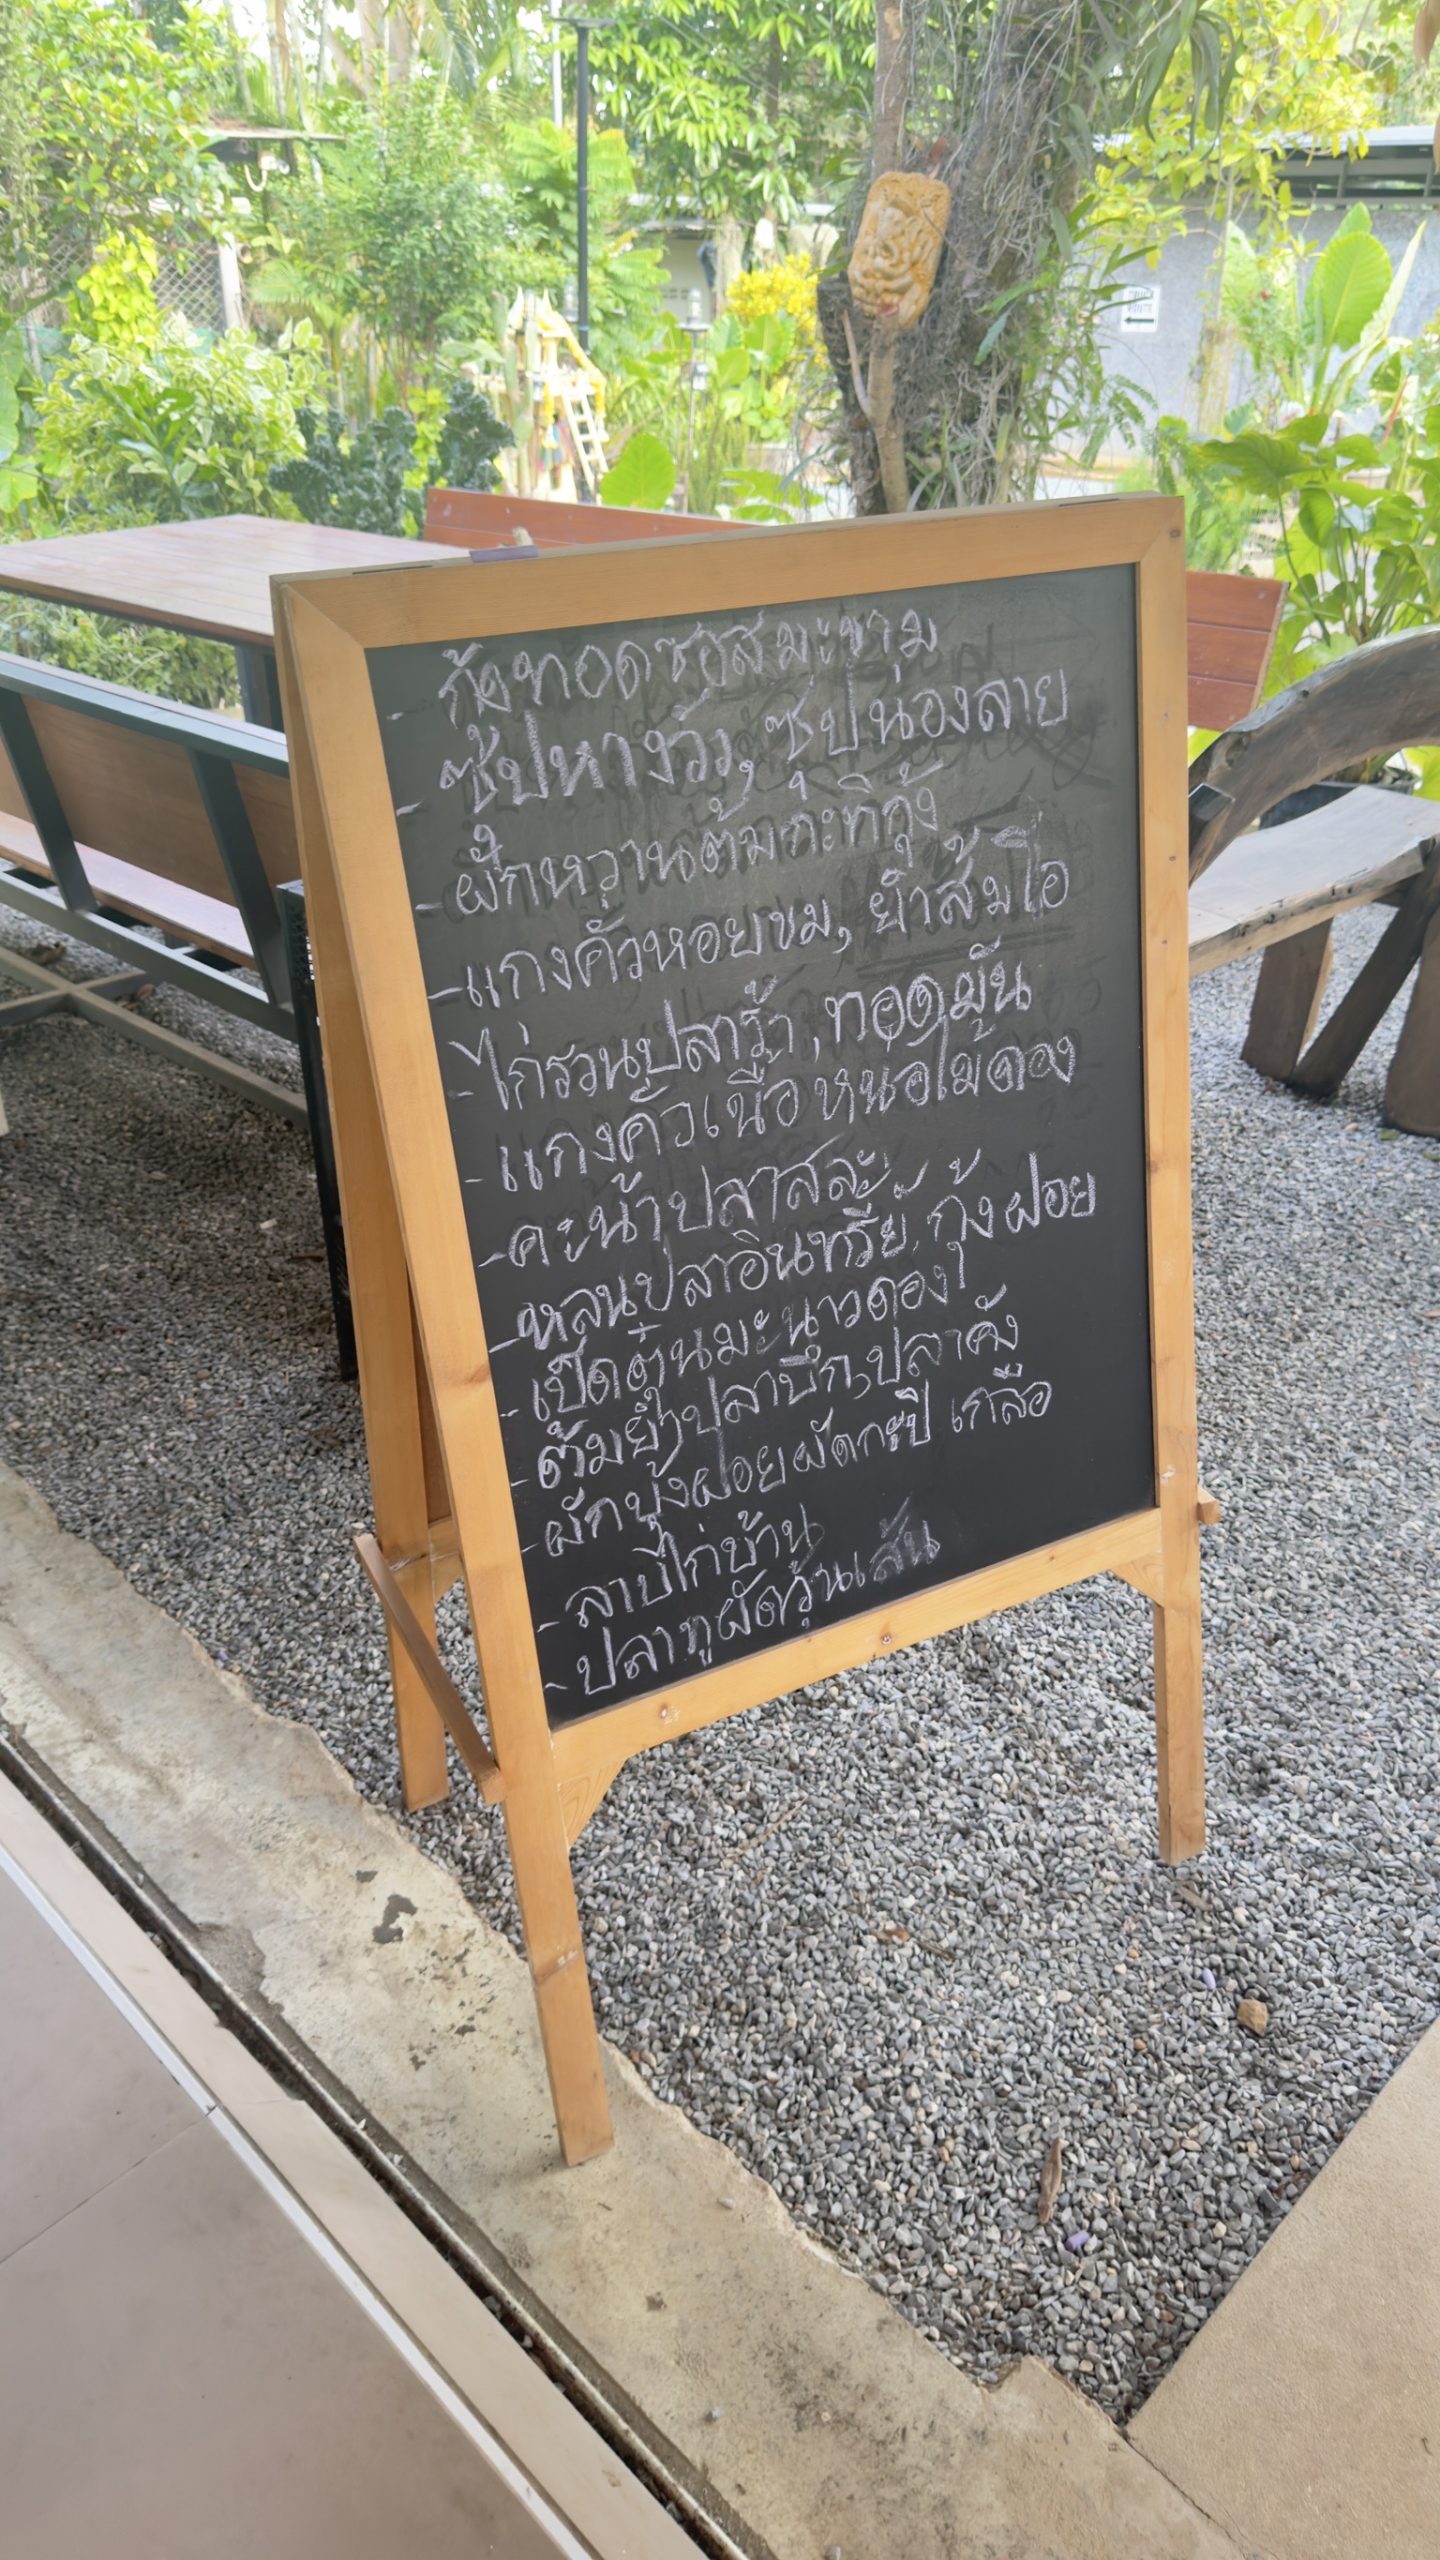 - กุ้งทอดซอสมะขาม
- ซุปหางวัว, ซุปน่องลาย
- ผักหวานต้มกะทิกุ้ง
- แกงคั่วหอยขม, ยำส้มโอ
- ไก่รวนปลาร้า, ทอดมัน
- แกงคั่วเนื้อหน่อไม้ดอง
- คะน้าปลาสละ
- หลนปลาอินทรีย์, กุ้งฝอย
- เป็ดตุ๋นมะนาวดอง
- ต้มยำปลาบึก, ปลาคัง
- ผักบุ้งฝอยผัดกะปิ เกลือ
- ลาบไก่บ้าน
- ปลาทูผัดวุ้นเส้น